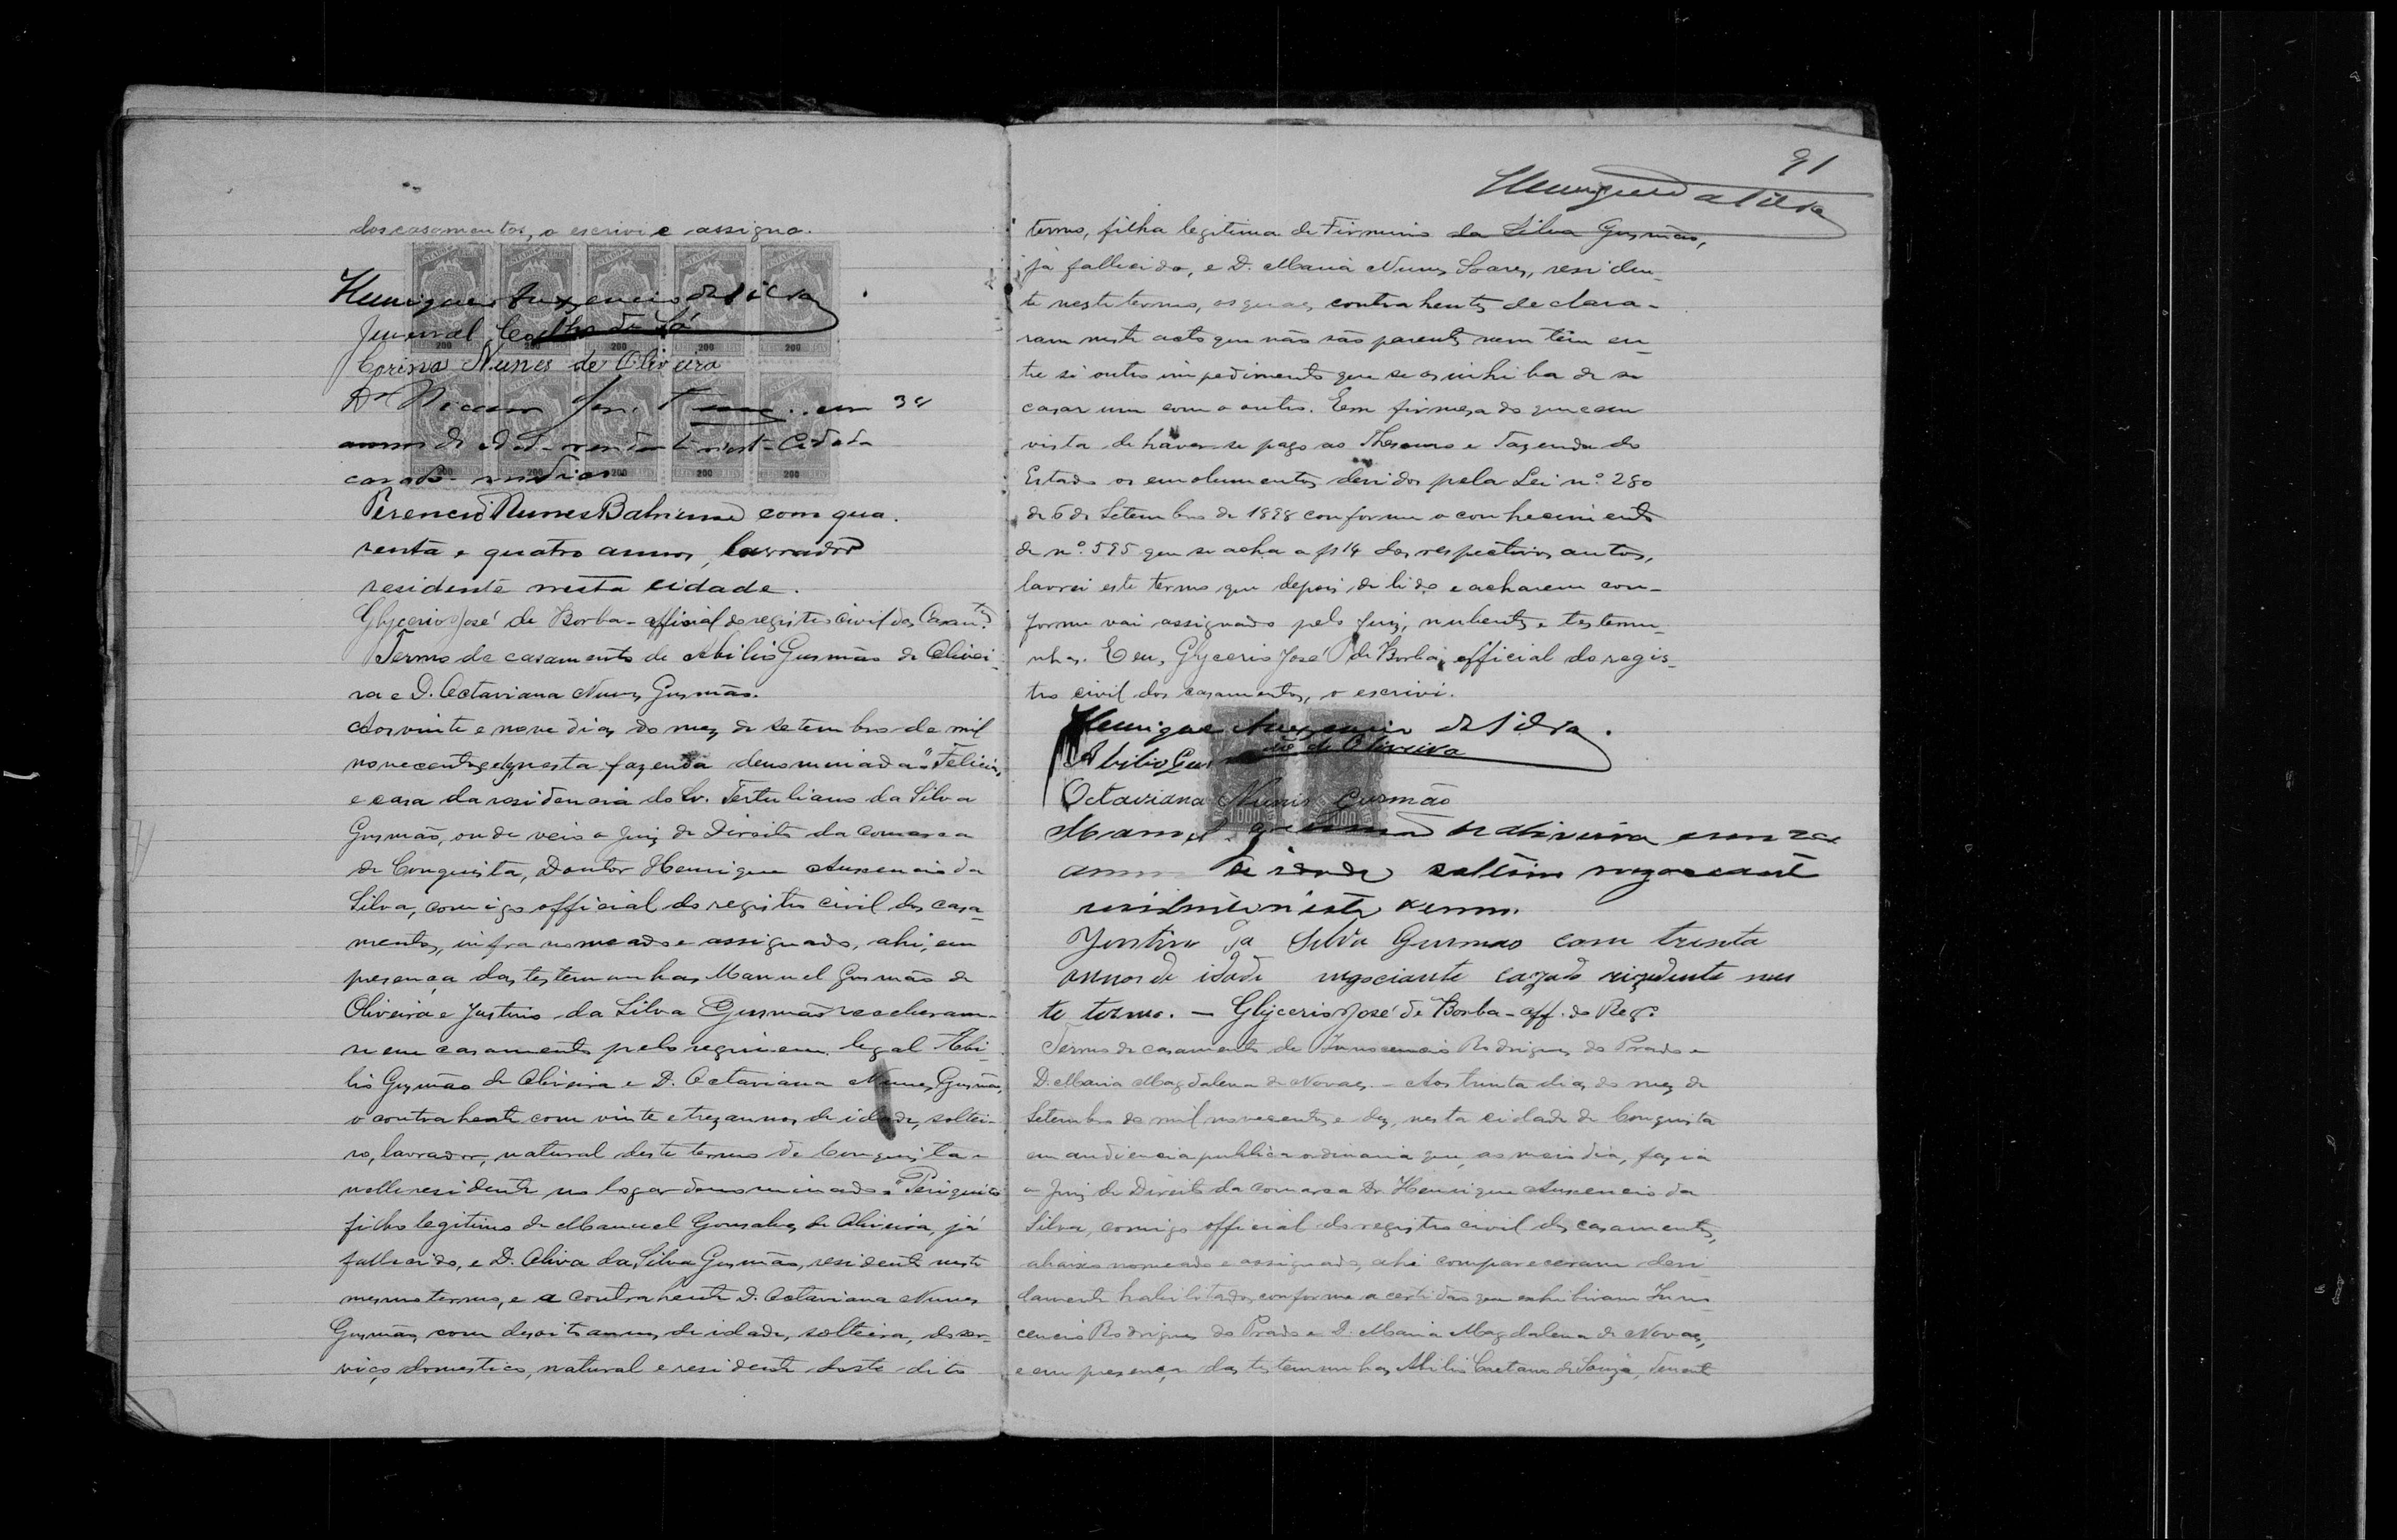 dos casamentos, o escrivi e assigno.
Henrique Auxencio da Silva
Juvenal Coelho de Sá
Corina Nunes de Oliveira
Dr em 34
annos de idade residente nesta Cidade
casado medico
Nunes Bahiense com qua-
renta e quatro annos, lavrador
residente nesta cidade.
Glycerio José de Borba - official do registro civil dos Casamtos
Termo de casamento de Abilio Gusmão de Olivei-
ra e D. Octaviana Nunes Gusmão.
Aos vinte e nove dias do mez de setembro de mil
novecentos e dez, nesta fazenda denominada "Felicia,
e casa da residencia do Sr. Tertuliano da Silva
Gusmão, onde veio o Juiz de Direito da Comarca
de Conquista, Doutor Henrique Auxencio da
Silva, comigo official do registro civil dos casa-
mentos, infra nomeado e assignado, ahi, em
presença das testemunhas Manuel Gusmão de
Oliveira e Justino da Silva Gusmão receberam-
se em casamento pelo regimem legal Abi-
lio Gusmão de Oliveira e D. Octaviana Nunes Gusmão,
o contrahente com vinte e trez annos de idade, soltei-
ro, lavrador, natural deste termo de Conquista e
nelle residente no logar denominado "Periquito"
filho legitimo de Manuel Gonsalves de Oliveira, já
fallecido, e D. Oliva da Silva Gusmão, residente neste
mesmo termo, e a contrahente D. Octaviana Nunes
Gusmão, com desoito annos de idade, solteira, do ser-
viço domestico, natural e residente deste dito
91
Henrique da Silva
termo, filha legitima de Firmino da Silva Gusmão,
já fallecido, e D. Maria Nunes Soares, residen-
te neste termo, os quaes contrahentes declara-
ram neste acto que não são parentes nem têm en-
tre si outro impedimento que se os inhiba de se
casar um com o outro. Em firmeza do que e em
vista de haver-se pago ao Thesouro e Fazenda do
Estado os emolumentos devidos pela Lei nº 280
de 6 de Setembro de 1898 conforme o conhecimento
de nº 595 que se acha a fs 14 dos respectivos autos,
lavrei este termo que depois de lido e acharem con-
forme vai assignado pelo Juiz, nubentes e testemu-
nhas. E eu, Glycerio José de Borba, official do regis-
tro civil dos casamentos, o escrivi.
Henrique Auxencio da Silva.
Abilio Gusmão de Oliveira
Octaviana Nunis Gusmão
Manoel gusmão de oliveira com
annos de idade solteiro negociante
residente neste termo.
Justino da Silva Gusmao com trinta
annos de idade negociante cazado rizedente nes
te termo. - Glycerio José de Borba - off. do Rego
Termo de casamento de Innocencio Rodrigues do Prado e
D. Maria Magdalena de Novaes. - Aos trinta dias do mez de
Setembro de mil novecentos e dez, nesta cidade de Conquista
em audiencia publica ordinaria que, ao meio dia, fazia
o Juiz de Direito da comarca Dr. Henrique Auxencio da
Silva, comigo official do registro civil dos casamentos,
abaixo nomeado e assignado, ahi compareceram devi-
damente habilitados, conforme a certidão que exhibiram Inno-
cencio Rodrigues do Prado e D. Maria Magdalena de Novaes,
e em presença das testemunhas Abilio Caetano de Souza, Tenente